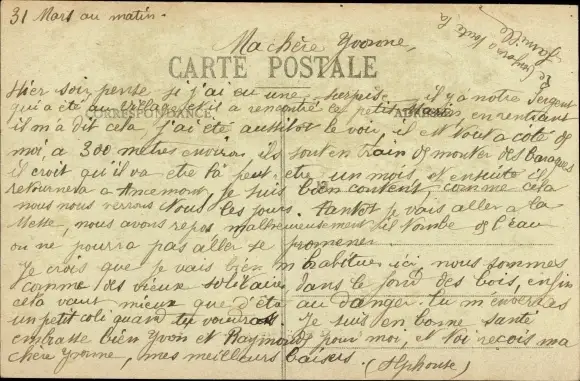 31 Mars au matin.
Ma chère Yvonne,
CARTE POSTALE
CORRESPONDANCE
Hier soir, pense si j'ai eu une surprise, il y a notre Sergent
qui a été au village et il a rencontré le petit en rentrant
il m'a dit cela, j'ai été aussitot le voir, il est tout a côté de
moi, a 300 mètres environ, ils sont en train de monter des baraques
il croit qu'il va être là peut-être un mois, et ensuite il
retournera a Ancemont, je suis bien content, comme cela
nous nous verrons tous les jours. tantot je vais aller a la
Messe, nous avons repos malheureusement il tombe de l'eau
on ne pourra pas aller se promener.
Je crois que je vais bien m'habituer ici, nous sommes
comme des vieux solitaires dans le fond des bois, enfin
cela vaut mieux que d'être au danger. tu m'enverras
un petit coli quand tu voudras Je suis en bonne santé
embrasse bien Yvon et Raymond pour moi, et toi reçois ma
chère Yvonne, mes meilleurs baisers. (Alphonse)
toute la
famille